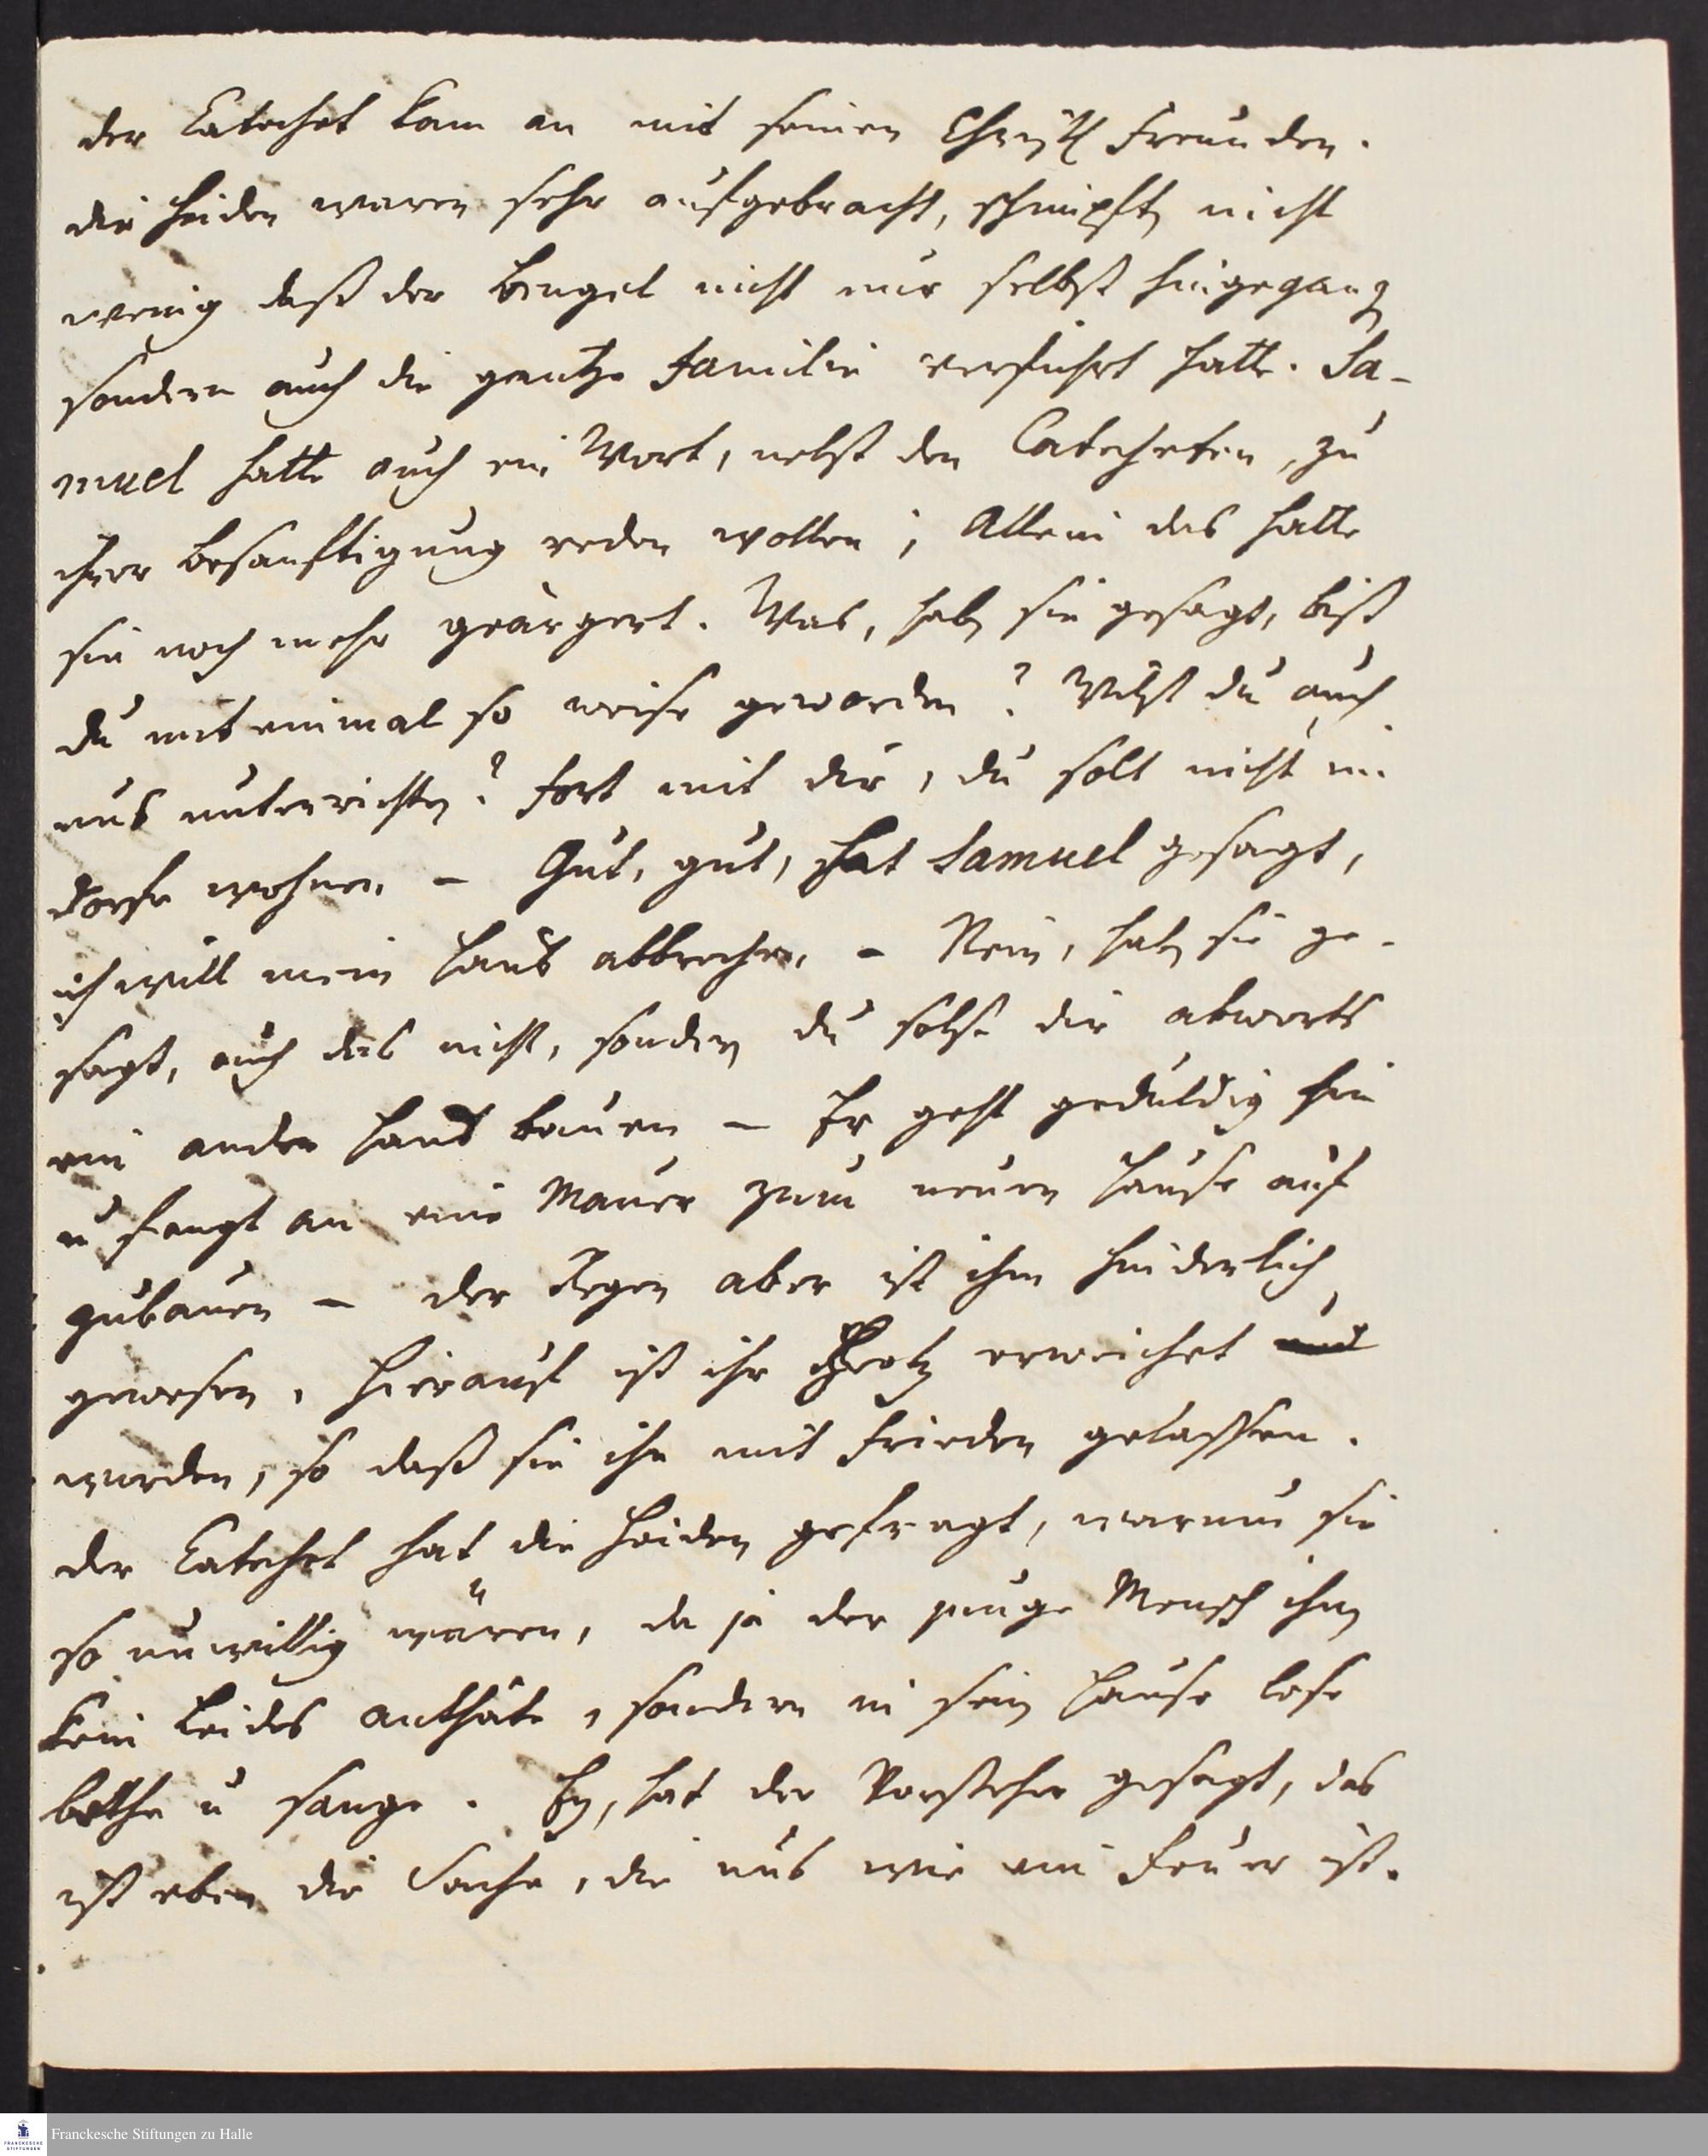 der Catechet kam an mit seinen Christl Freunden.
die Heiden waren sehr aufgebracht, schimpften nicht
wenig daß der Bengel nicht nur selbst hingegangen
sondern auch die gantze Familie verführt hatte. Sa-
muel hatte auch ein Wort, nebst den Catecheten, zu
ihrer Besanftigung reden wollen; Allein das hatte
sie noch mehr geärgert. Was, haben sie gesagt, bist
du mit einmal so weise geworden? Wilst du auch
uns unterrichten? fort mit dir, du solt nicht im
dorfe wohnen. - Gut, gut, hat Samuel gesagt,
ich will mein Haus abbrechen. - Nein, haben sie ge-
sagt, auch das nicht, sondern du solst dir abwerts
ein ander Haus bauen - Er geht geduldig hin
u fangt an eine Mauer zum neuen Hause auf
zubauen - der Regen aber ist ihm hinderlich
gewesen. Hierauf ist ihr Hertz erweichet und
worden, so daß sie ihn mit Frieden gelassen.
der Catechet hat die Heiden gefragt, warum sie
so unwillig wären, da ja der junge Mensch ihnen
kein Leides anthäte, sondern in sein Hause lese
bethe u sange. Ey, hat der Vorsteher gesagt, das
ist eben die Sache, die uns wie ein Feuer ist.
Franckesche Stiftungen zu Halle